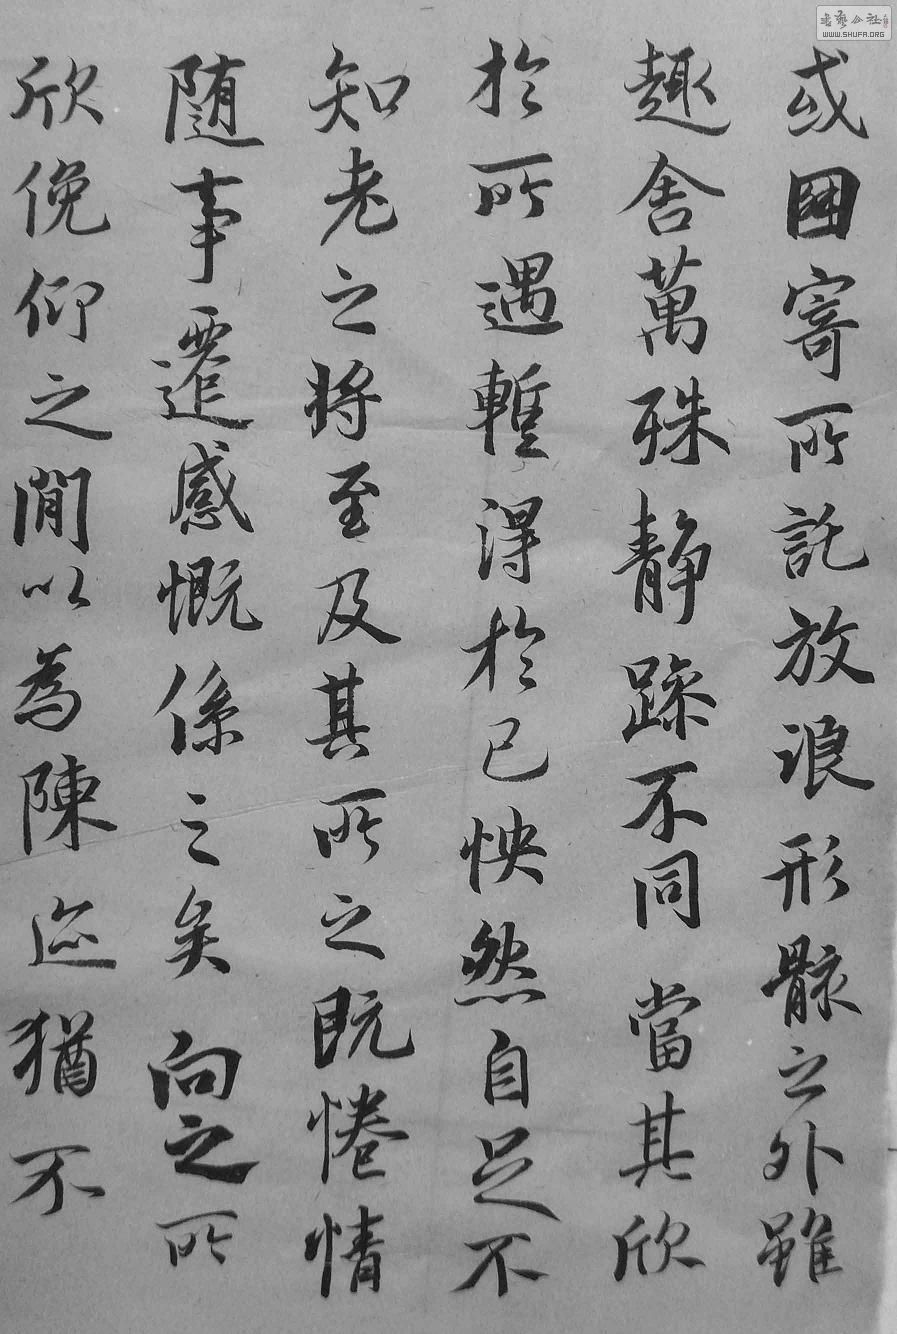 或因寄所託放浪形骸之外雖
趣舍萬殊静躁不同當其欣
於所遇暫得於己怏然自足不
知老之將至及其所之既惓情
随事遷感慨係之矣向之所
欣俛仰之間以為陳迹猶不
書藝公社
WWW.SHUFA.ORG